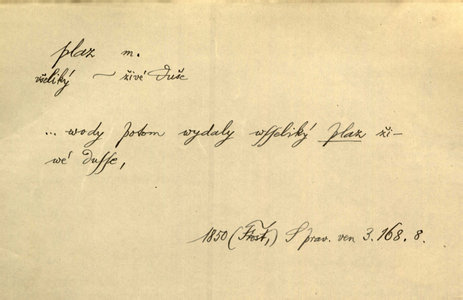 plaz m.
všeliký ~ živé duše
... wody potom wydaly wsseliký plaz ži-
wé dusse,
1850 (Třost,) Sprav. ven 3. 168. 8.